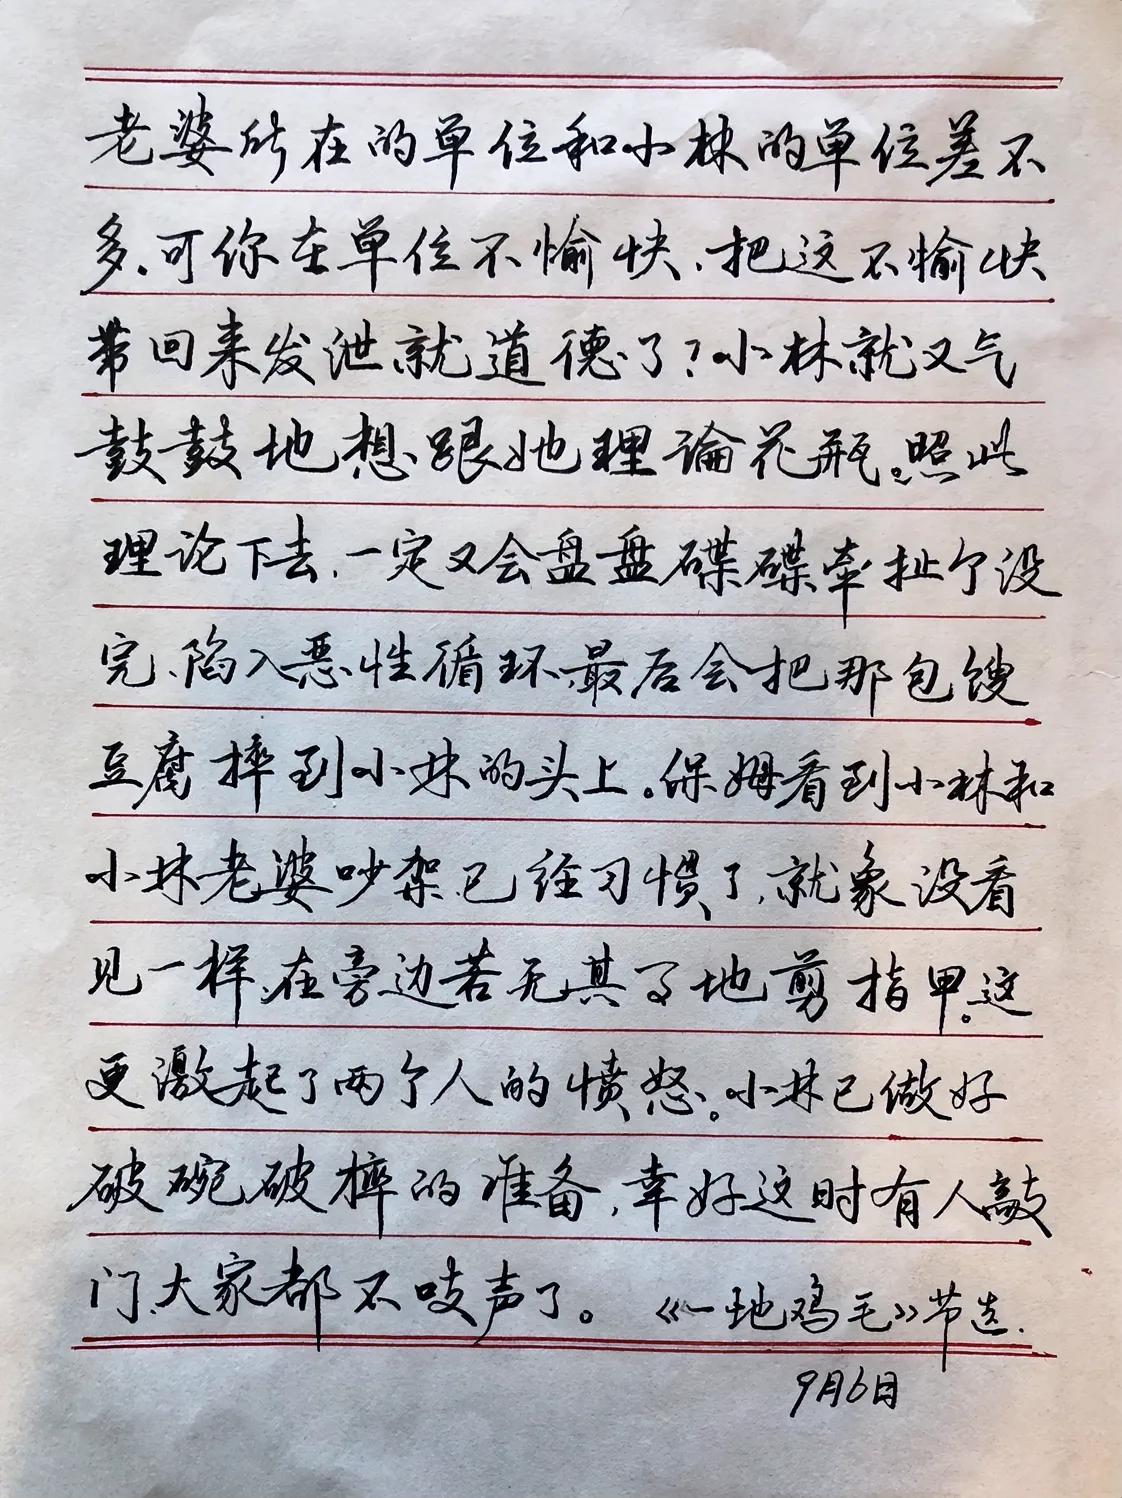 老婆所在的单位和小林的单位差不
多。可你在单位不愉快、把这不愉快
带回来发泄就道德了？小林就又气
鼓鼓地想跟她理論花瓶。照此
理论下去，一定又会盘盘碟碟牵扯个没
完、陷入恶性循环，最后会把那包馊
豆腐摔到小林的头上。保姆看到小林和
小林老婆吵架，已经习惯了，就象没看
见一样，在旁边若无其事地剪指甲。这
更激起了两个人的愤怒。小林已做好
破碗破摔的准备，幸好这时有人敲
门，大家都不吱声了。《一地鸡毛》节选.
9月6日